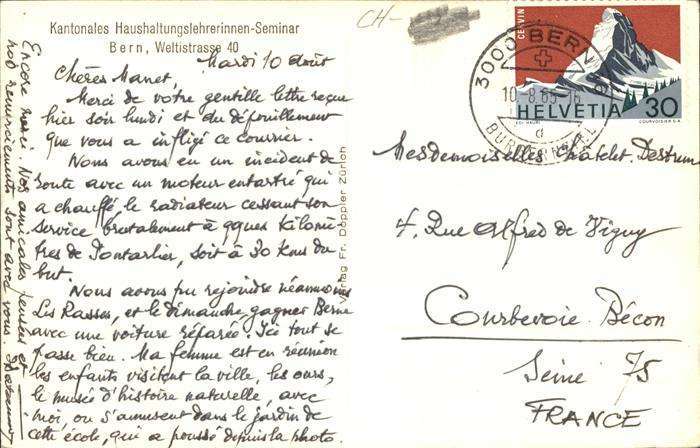 Kantonales Haushaltungslehrerinnen-Seminar
Bern, Weltistrasse 40
Mardi 10 Août
Chères Manet
Merci de vôtre gentille lettre reçue
hier soir lundi et du dépouillement
que vous a infligé ce courrier.
Nous avons eu un incident de
route avec un moteur entartré qui
a chauffé, le radiateur cessant son
service brutalement à qques kilomè
tres de Pontarlier, soit à 30 Kms du
but.
Nous avons pu rejoindre néanmoins
Les Rasses, et le dimanche, gagner Berne
avec une voiture réparée. Ici tout se
passe bien. Ma femme est en réunion
les enfants visitent la ville, les ours,
le musée d'histoire naturelle, avec
moi, ou s'amusent dans le jardin de
cette école, qui a poussé depuis la photo.
Encore merci. Nos amicales pensées et
nos remerciements sont avec vous.
Verlag Fr. Doppler Zürich
CH-
3000 BERN
10.8.65
d
BURGERNZIEL
CERVIN
HELVETIA 30
COURVOISIER S.A.
Mesdemoiselles Chatelet. Destrum
4. Rue Alfred de Vigny
Courbevoie. Bécon
Seine 75
FRANCE